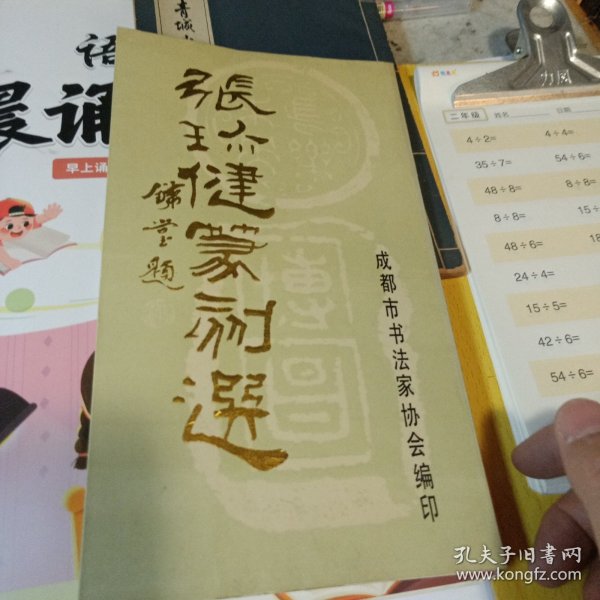 張珩健篆刻選
鏽堂題
成都市书法家协会编印
青城
语
晨诵
早上诵
二年级
姓名
日期
4÷2=
4÷4=
35÷7=
54÷6=
48÷8=
8÷8=
8÷8=
15÷
48÷6=
18
24÷4=
15÷5=
42÷6=
54÷6=
孔夫子旧书网
www.kongfz.com